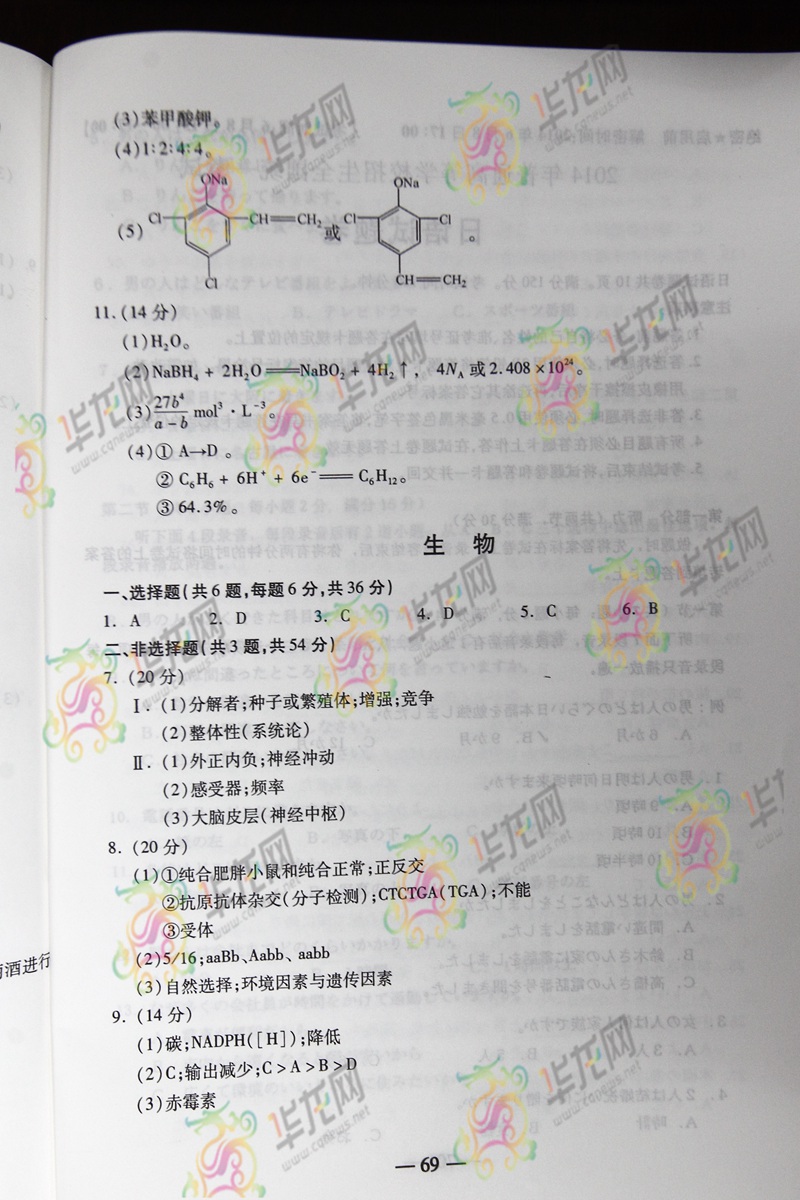 (3)苯甲酸钾。
(4)1:2:4:4。
ONa
ONa
Cl
CH=CH₂
Cl
Cl
(5)
或
。
Cl
CH=CH₂
11.(14分)
(1)H₂O。
(2)NaBH₄ + 2H₂O══NaBO₂ + 4H₂↑, 4Nᴀ或2.408×10²⁴。
(3)27b⁴/(a-b) mol³·L⁻³。
(4)① A→D 。
② C₆H₆ + 6H⁺ + 6e⁻══ C₆H₁₂。
③ 64.3%。
生 物
一、选择题(共6题,每题6分,共36分)
1. A 2. D 3. C 4. D 5. C 6. B
二、非选择题(共3题,共54分)
7. (20分)
Ⅰ. (1)分解者;种子或繁殖体;增强;竞争
(2)整体性(系统论)
Ⅱ. (1)外正内负;神经冲动
(2)感受器;频率
(3)大脑皮层(神经中枢)
8. (20分)
(1)①纯合肥胖小鼠和纯合正常;正反交
②抗原抗体杂交(分子检测);CTCTGA(TGA);不能
③受体
(2)5/16;aaBb、Aabb、aabb
(3)自然选择;环境因素与遗传因素
9. (14分)
(1)碳;NADPH([H]);降低
(2)C;输出减少;C>A>B>D
(3)赤霉素
— 69 —
酒进行
华龙网
www.cqnews.net